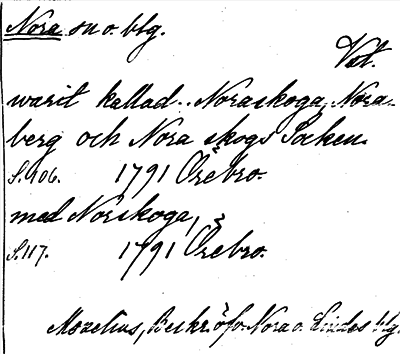 Nora sn o. blg.
Vst.
warit kallad.. Noraskoga, Nora-
berg och Nora skogs Socken.
S. 106. 1791 Örebro.
med Norskoga,
S. 117. 1791 Örebro.
Mozelius, Beskr. öfv. Nora o. Lindes blg.